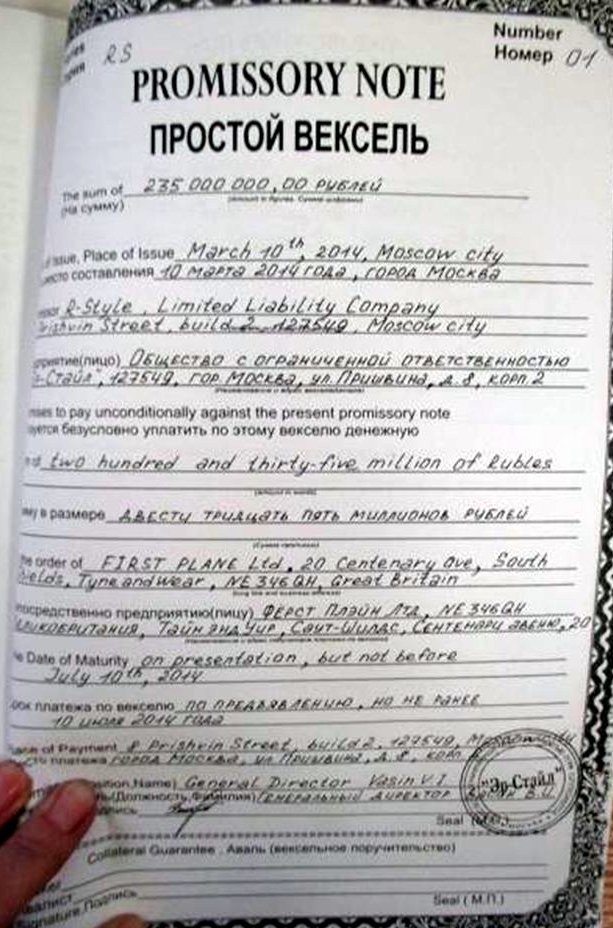 Number
Номер 01
RS
PROMISSORY NOTE
ПРОСТОЙ ВЕКСЕЛЬ
The sum of 235 000 000,00 рублей
(На сумму)
Issue, Place of Issue March 10th, 2014, Moscow city
составления 10 марта 2014 года, город Москва
R-Style, Limited Liability Company
Prishvin Street, build 2, 127549, Moscow city
(лицо) Общество с ограниченной ответственностью
Стайл", 127549, гор. Москва, ул. Пришвина, д. 8, корп. 2
to pay unconditionally against the present promissory note
безусловно уплатить по этому векселю денежную
two hundred and thirty-five million of Rubles
в размере двести тридцать пять миллионов рублей
order of FIRST PLANE Ltd, 20 Centenary ave, South
Tyne and Wear, NE346QH, Great Britain
предприятию(лицу) Ферст Плэйн Лтд, NE346QH
Тайн энд Уир, Саут-Шилдс, Сентенари авеню, 20
Date of Maturity on presentation, but not before
July 10th, 2014
платежа по векселю по предъявлению, но не ранее
10 июля 2014 года
of Payment 8 Prishvin Street, build 2, 127549, Moscow city
платежа город Москва, ул. Пришвина, д. 8, корп.
Name) General Director Vasin V.I
(Должность, Фамилия) Генеральный директор Васин В.И.
"Эр-Стайл"
Seal (М.П.)
Collateral Guarantee . Аваль (вексельное поручительство)
Signature,Подпись
Seal ( М.П.)